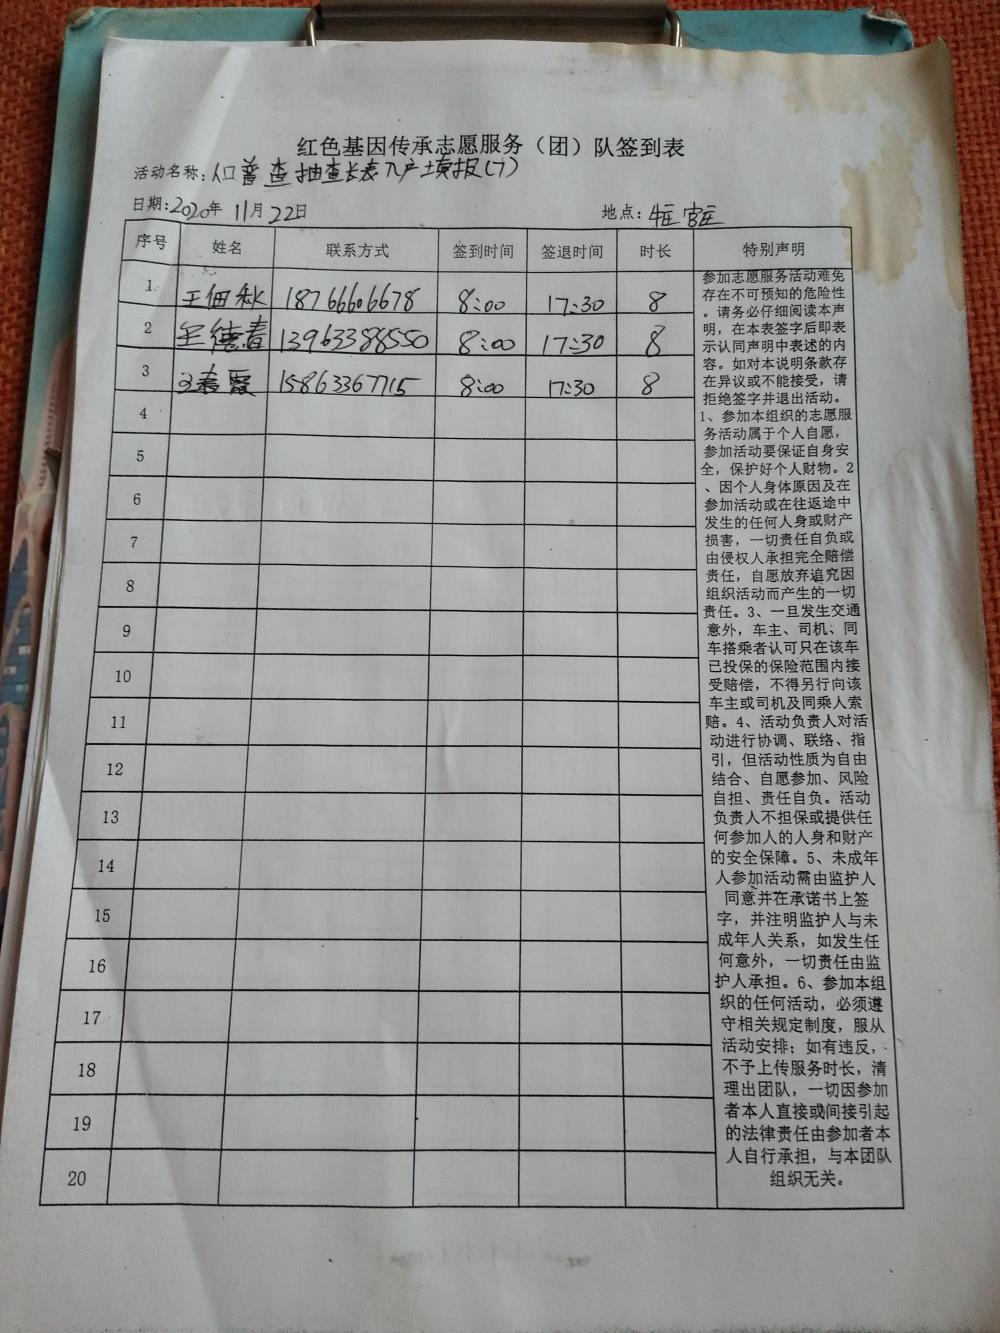 红色基因传承志愿服务（团）队签到表
活动名称：人口普查抽查长表入户填报(7)
日期：2020年 11月 22日 地点：
序号 姓名 联系方式 签到时间 签退时间 时长 特别声明
1 王佃秋 18766606678 8:00 17:30 8
2 德春 13963388550 8:00 17:30 8
3 春霞 15863367715 8:00 17:30 8
4
5
6
7
8
9
10
11
12
13
14
15
16
17
18
19
20
参加志愿服务活动难免
存在不可预知的危险性
。请务必仔细阅读本声
明，在本表签字后即表
示认同声明中表述的内
容。如对本说明条款存
在异议或不能接受，请
拒绝签字并退出活动。
1、参加本组织的志愿服
务活动属于个人自愿，
参加活动要保证自身安
全，保护好个人财物。2
、因个人身体原因及在
参加活动或在往返途中
发生的任何人身或财产
损害，一切责任自负或
由侵权人承担完全赔偿
责任，自愿放弃追究因
组织活动而产生的一切
责任。3、一旦发生交通
意外，车主、司机、同
车搭乘者认可只在该车
已投保的保险范围内接
受赔偿，不得另行向该
车主或司机及同乘人索
赔。4、活动负责人对活
动进行协调、联络、指
引，但活动性质为自由
结合、自愿参加、风险
自担、责任自负。活动
负责人不担保或提供任
何参加人的人身和财产
的安全保障。5、未成年
人参加活动需由监护人
同意并在承诺书上签
字，并注明监护人与未
成年人关系，如发生任
何意外，一切责任由监
护人承担。6、参加本组
织的任何活动，必须遵
守相关规定制度，服从
活动安排；如有违反，
不予上传服务时长，清
理出团队，一切因参加
者本人直接或间接引起
的法律责任由参加者本
人自行承担，与本团队
组织无关。